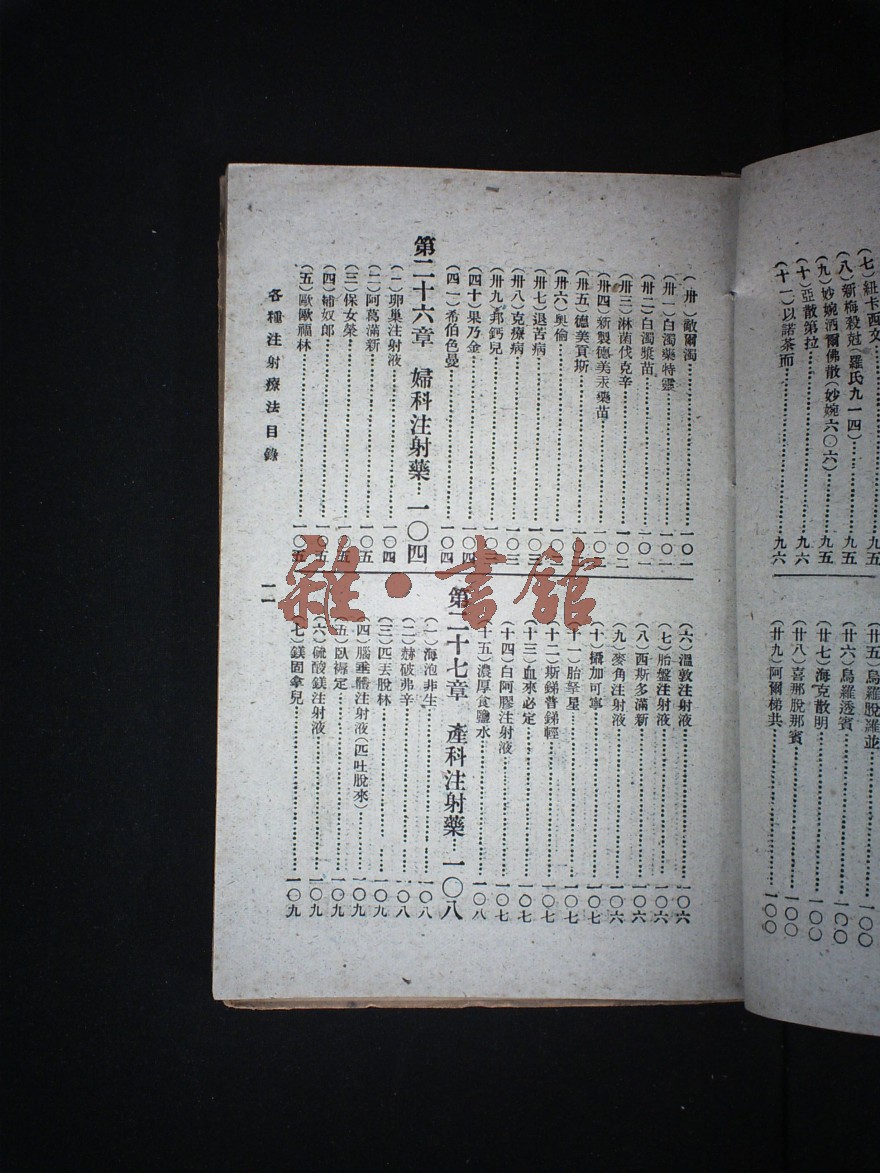 (七)紐卡西文……九五
(八)新梅殺尅(羅氏九一四)……九五
(九)妙婉洒爾佛散(妙婉六〇六)……九五
(十)亞散第拉……九六
(十一)以諾茶而……九六
(廿五)烏羅脫羅並……一〇〇
(廿六)烏羅透賓……一〇〇
(廿七)海克散明……一〇〇
(廿八)喜那脫那賓……一〇〇
(廿九)阿爾梯共……一〇〇
(卅)敵爾濁……一〇一
(卅一)白濁藥特靈……一〇一
(卅二)白濁漿苗……一〇一
(卅三)淋菌伐克辛……一〇二
(卅四)新製德美汞藥苗……一〇二
(卅五)德美貢斯……一〇
(卅六)奧倫……一〇
(卅七)退苦病……一〇三
(卅八)克療病……一〇三
(卅九)邦鈣兒……一〇
(四十)果乃金……一〇四
(四一)希伯色曼……一〇四
第二十六章 婦科注射藥……一〇四
(一)卵巢注射液……一〇四
(二)阿葛滿新……一〇五
(三)保女榮……一〇五
(四)補奴郎……一〇五
(五)歐歐福林……一〇五
(六)溫敦注射液……一〇六
(七)胎盤注射液……一〇六
(八)西斯多滿新……一〇六
(九)麥角注射液……一〇六
(十)攝加可寧……一〇七
(十一)胎孕星……一〇七
(十二)斯錦普錦輕……一〇七
(十三)血來必定……一〇七
(十四)白阿膠注射液……一〇七
(十五)濃厚食鹽水……一〇八
第二十七章 產科注射藥……一〇八
(一)海泡非生……一〇八
(二)赫破弗辛……一〇八
(三)匹丟脫林……一〇九
(四)腦垂體注射液(匹吐脫來)……一〇九
(五)臥褥定……一〇九
(六)硫酸鎂注射液……一〇九
(七)鎂固拿兒……一〇九
各種注射療法目錄
一一
雜·書館